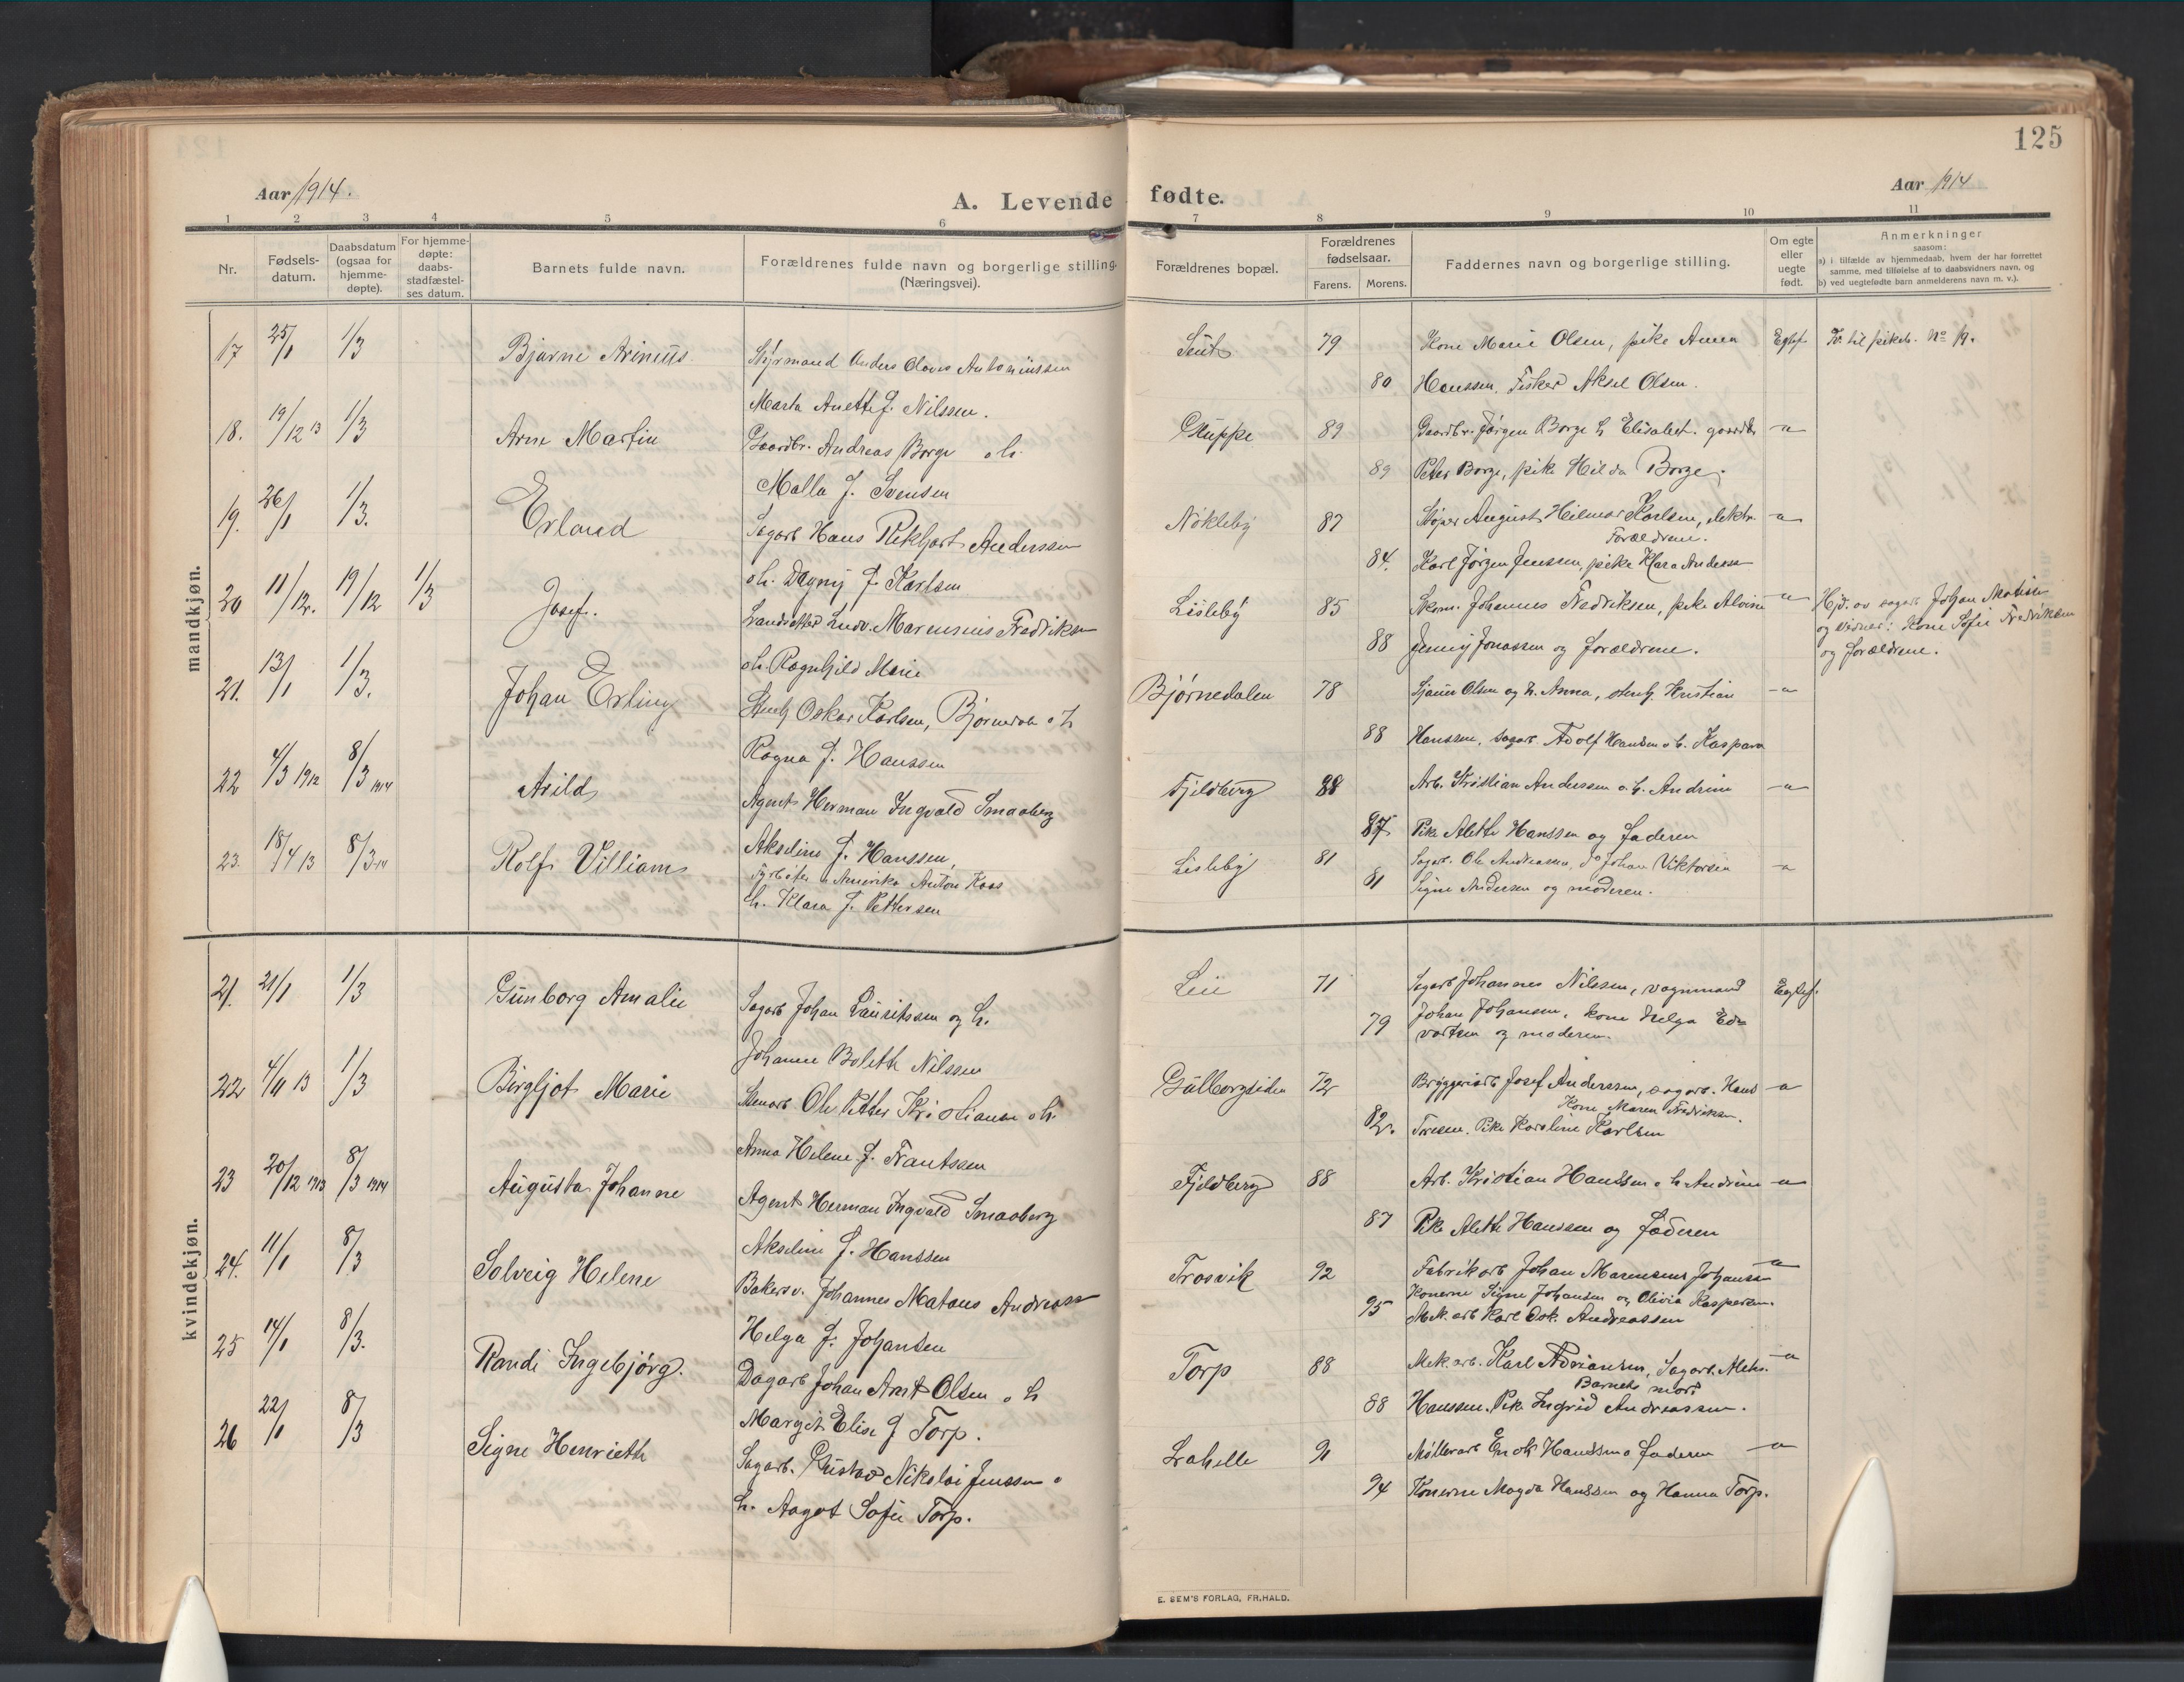 125
Aar 1914.
A. Levende fødte.
Aar 1914
1 2 3 4 5 6 7 8 9 10 11
Nr.
Fødsels-
datum.
Daabsdatum
(ogsaa for
hjemme-
døpte).
For hjemme-
døpte:
daabs-
stadfæstel-
ses datum.
Barnets fulde navn.
Forældrenes fulde navn og borgerlige stilling.
(Næringsvei).
Forældrenes bopæl.
Forældrenes
fødselsaar.
Farens. Morens.
Faddernes navn og borgerlige stilling.
Om egte
eller
uegte
født.
Anmerkninger
saasom:
a) i tilfælde av hjemmedaab, hvem der har forrettet
samme, med tilføielse af to daabsvidners navn, og
b) ved uegtefødte barn anmelderens navn m. v.).
mandkjøn.
17 25/1 1/3 Bjarne Arinius. Styrmand Anders Olaves Antoniussen 79 Kone Marie Olsen, pike Anna Egtef. Tv. til pikeb. No 19.
Marta Anette f. Nilssen. 80 Hanssen. Fisker Aksel Olsen.
18. 19/12 13 1/3 Arne Martin Gaardbr. Andreas Borge o h. Gluppe 89 Gaardbr. Jørgen Borge h Elisabet. gaardb —"—
Malla f. Svensen 89 Peter Borge, pike Hilda Borge.
19. 26/1 1/3. Erland Sagarb Hans Rikhart Anderssen Nøkleby 87 Støper August Hilmar Karlsen, elektr. —"—
Forældrene.
oh. Dagny f. Karlsen 84. Karl Jørgen Jenssen, pike Klara Anderss
20 11/12. 19/12 1/3 Josef. Landsætter Ludv. Marensius Fredriksen Lisleby 85 Skom. Johannes Fredriksen, pike Alvine —"— Hjd. av sagarb Johan Matisen
og vidner: Kone Sofie Fredriksen
oh. Ragnhild Marie 88 Jenny Jonassen og forældrene. og forældrene.
21. 13/1 1/3. Johan Erling Stenh Oskar Karlsen, Bjørnedal o h Bjørnedalen 78 Sjauer Olsen og h. Anna, stenh. Kristian —"—
Ragna f. Hanssen 88 Hanssen, sagarb. Adolf Hansen o h. Kaspara
22 4/3 1912 8/3 1914 Arild Agent Herman Ingvald Smaaberg Fjeldberg 88 Arb. Kristian Anderssen o. h. Andrine —"—
Akseline f. Hanssen, 87 Pike Alette Hanssen og faderen
23. 18/4 13 8/3 14 Rolf Villiam Fyrbøter i Amerika Anton Kaas Lisleby 81 Sagarb. Ole Andreassen, do Johan Viktorsen —"—
h. Klara f. Pettersen 81 Signe Andersen og moderen.
kvindekjøn.
21. 21/1 1/3 Gunborg Amalie Sagarb Johan Lauritssen og h. Lie 71 Sagarb Johannes Nilssen, vognmand Egtef.
Johan Johansen, kone Helga Ed-
Johanne Bolette Nilssen 79 vartsen og moderen.
22 4/11 13 1/3 Birgljot Marie Stenarb Ole Petter Kristiansen o h. Gulbergsiden 72 Bryggeriarb Josef Anderssen, sagarb. Hans —"—
Kone Maren Fredriksen.
Anna Helene f. Frantssen 82. Pike Karoline Karlsen
23 20/12 1913 8/3 1914 Augusta Johanne Agent Herman Ingvald Smaaberg Fjeldberg 88 Arb. Kristian Hanssen o h Andrine —"—
Akseline f. Hanssen 87 Pike Alette Hanssen og faderen
24. 11/1 8/3 Solveig Helene Bakersv. Johannes Mataus Andreassen Trosvik 92 Fabrikarb Johan Marensius Johansen —"—
Konerne Signe Johansen og Olivia Kaspersen.
Helga f. Johansen 95 Mek. arb Karl Osk. Andreassen
25 14/1 8/3. Randi Ingebjørg. Dagarb Johan Arnt Olsen o h Torp 88 Mek. arb. Karl Adriansen, Sagarb. Aleks. —"—
Barnets mor
Margit Elise f Torp. 88 Hanssen. Pike Ingrid Andreassen.
26 22/1 8/3 Signe Henriette Sagarb. Gustav Nikolai Jenssen o Lahelle 91 Møllerarb Enok Hanssen o faderen —"—
h. Aagot Sofie Torp. 94 Konerne Magda Hanssen og Hanna Torp.
E. SEM'S FORLAG, FR.HALD.